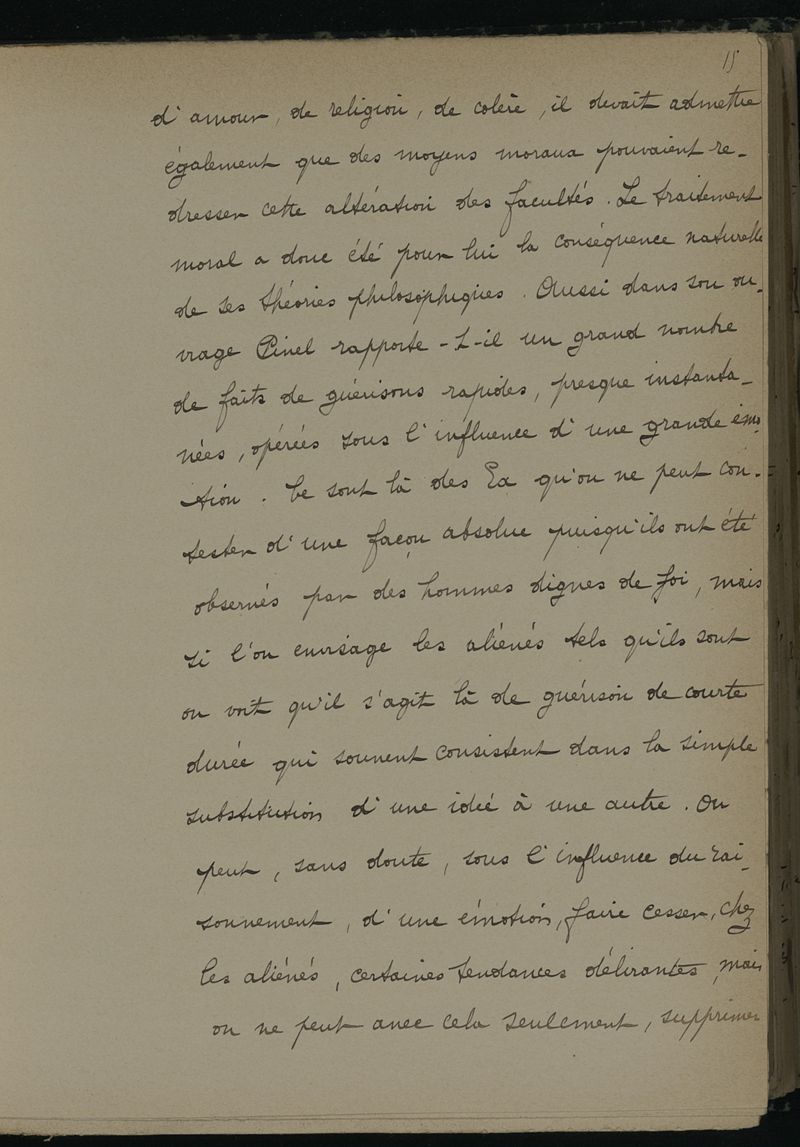 15
d'amour, de religion, de colère, il devait admettre
également que des moyens moraux pouvaient re-
dresser cette altération des facultés. Le traitement
moral a donc été pour lui la conséquence naturelle
de ses théories philosophiques. Aussi dans son ou-
vrage Pinel rapporte-t-il un grand nombre
de faits de guérisons rapides, presque instanta-
nées, opérées sous l'influence d'une grande émo-
tion. Ce sont là des Ex qu'on ne peut con-
tester d'une façon absolue puisqu'ils ont été
observés par des hommes dignes de foi, mais
si l'on envisage les aliénés tels qu'ils sont
on voit qu'il s'agit là de guérison de courte
durée qui souvent consistent dans la simple
substitution d'une idée à une autre. On
peut, sans doute, sous l'influence du rai-
sonnement, d'une émotion, faire cesser, chez
les aliénés, certaines tendances délirantes, mais
on ne peut avec cela seulement, supprimer